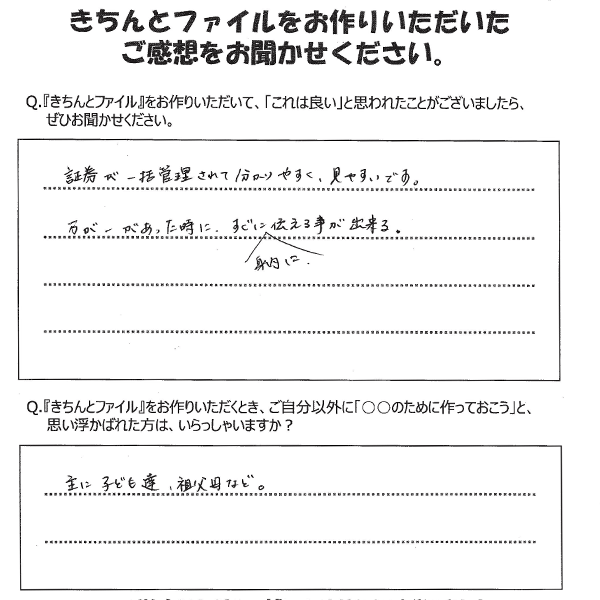 きちんとファイルをお作りいただいた
ご感想をお聞かせください。
Q.『きちんとファイル』をお作りいただいて、「これは良い」と思われたことがございましたら、
ぜひお聞かせください。
証券が一括管理されて分かりやすく、見やすいです。
万が一があった時に、すぐに伝える事が出来る。
身内に、
Q.『きちんとファイル』をお作りいただくとき、ご自分以外に「〇〇のために作っておこう」と、
思い浮かばれた方は、いらっしゃいますか？
主に子ども達、祖父母など。